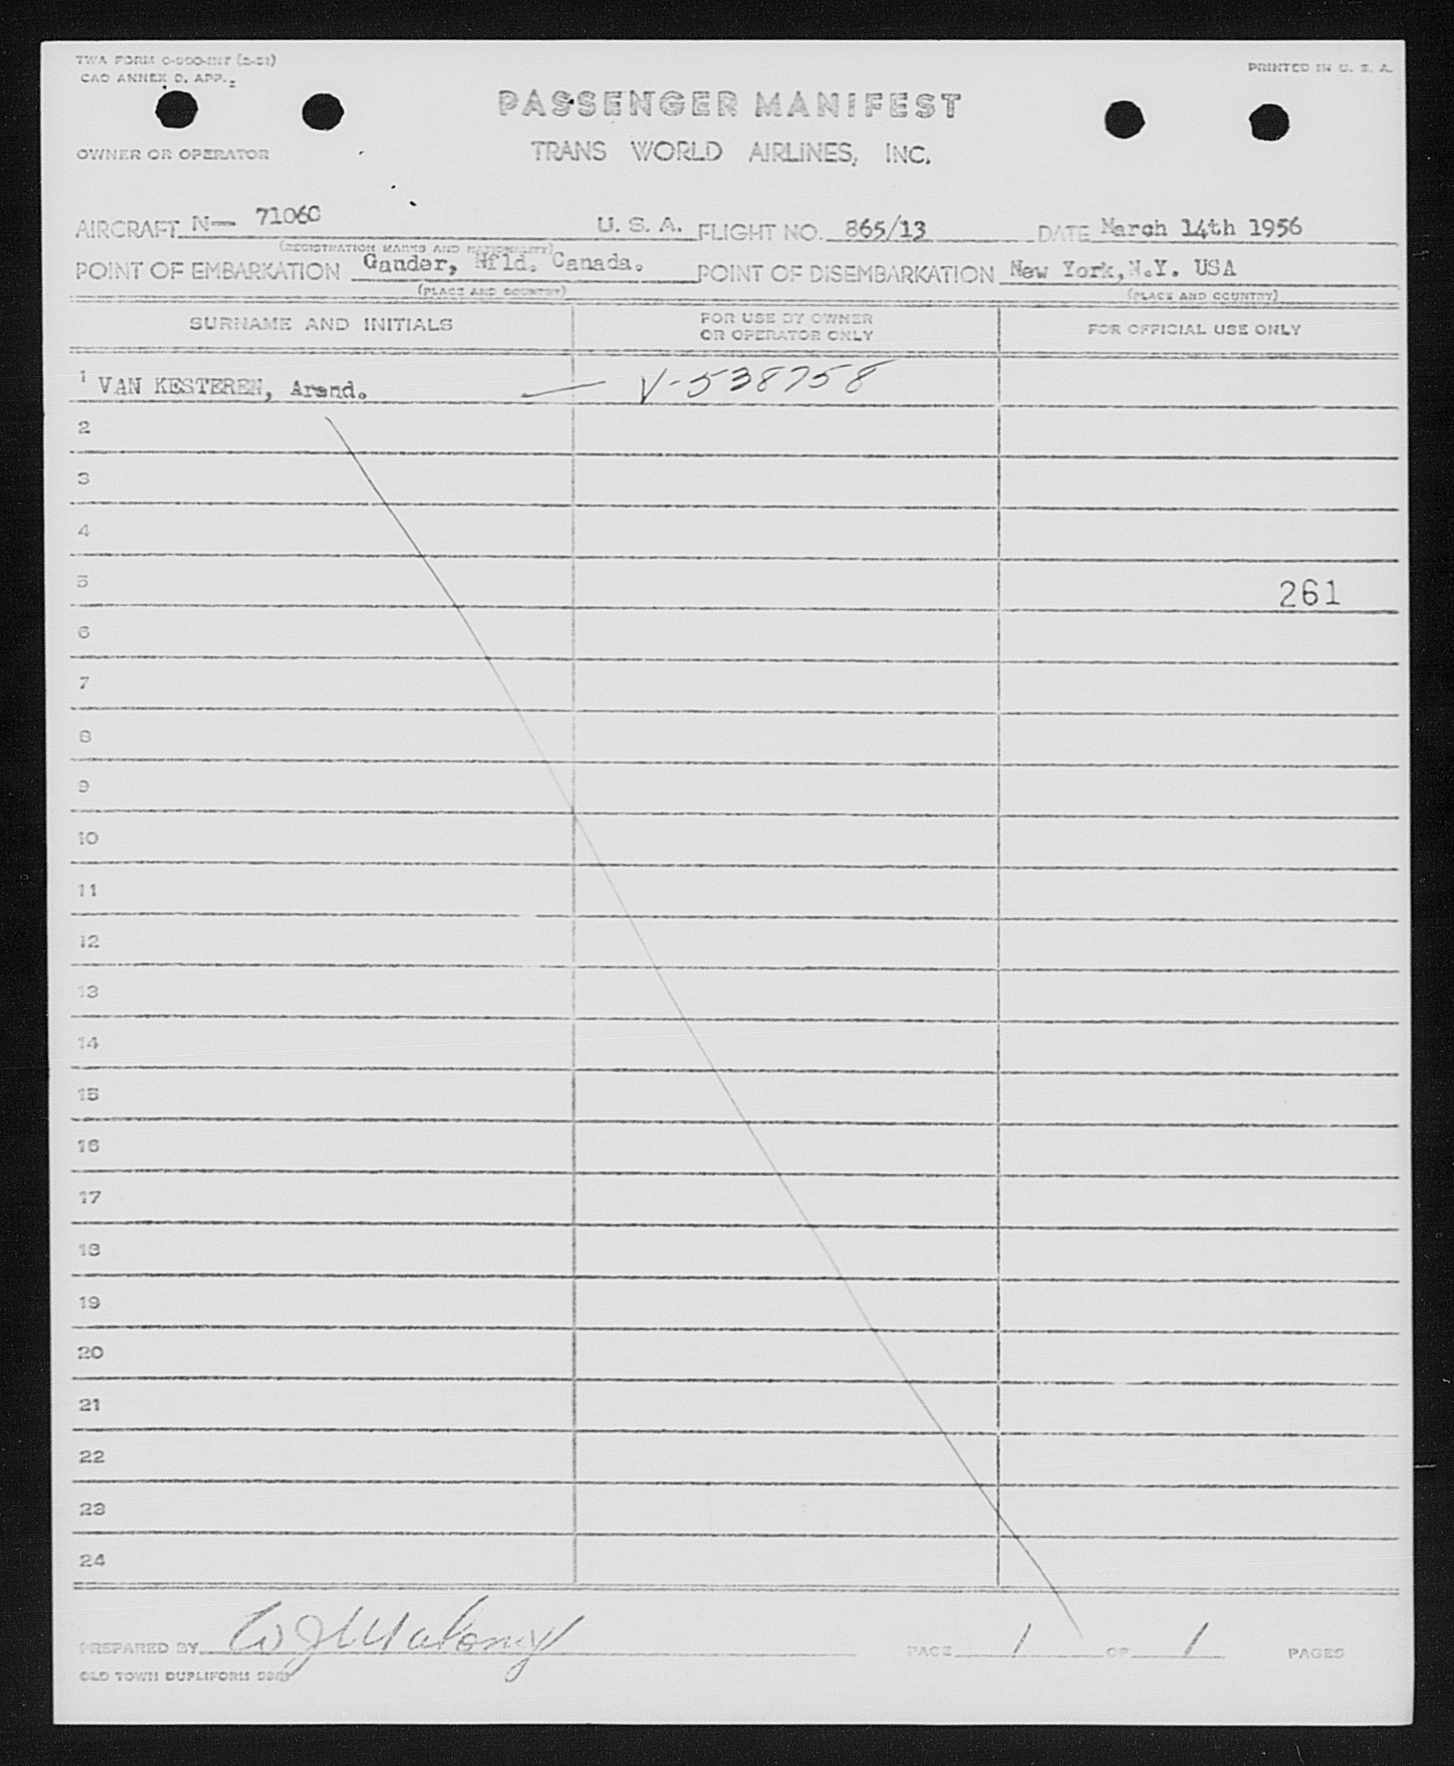 TWA FORM
CAO ANNEX D. APP.
PRINTED IN U. S. A.
PASSENGER MANIFEST
OWNER OR OPERATOR
TRANS WORLD AIRLINES, INC.
AIRCRAFT N— 7106C U. S. A. FLIGHT NO. 865/13 DATE March 14th 1956
(REGISTRATION MARKS AND NATIONALITY)
POINT OF EMBARKATION Gander, Nfld. Canada. POINT OF DISEMBARKATION New York, N.Y. USA
(PLACE AND COUNTRY) (PLACE AND COUNTRY)
SURNAME AND INITIALS FOR USE BY OWNER OR OPERATOR ONLY FOR OFFICIAL USE ONLY
1 VAN KESTEREN, Arend. — V-538758
2
3
4
5 261
6
7
8
9
10
11
12
13
14
15
16
17
18
19
20
21
22
23
24
PREPARED BY W J Maloney PAGE 1 OF 1 PAGES
OLD TOWN DUPLIFORM